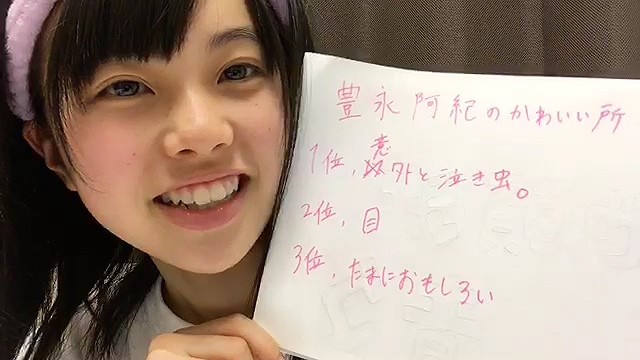 豊永阿紀のかわいい所
1位、意外と泣き虫。
2位、目
3位、たまにおもしろい